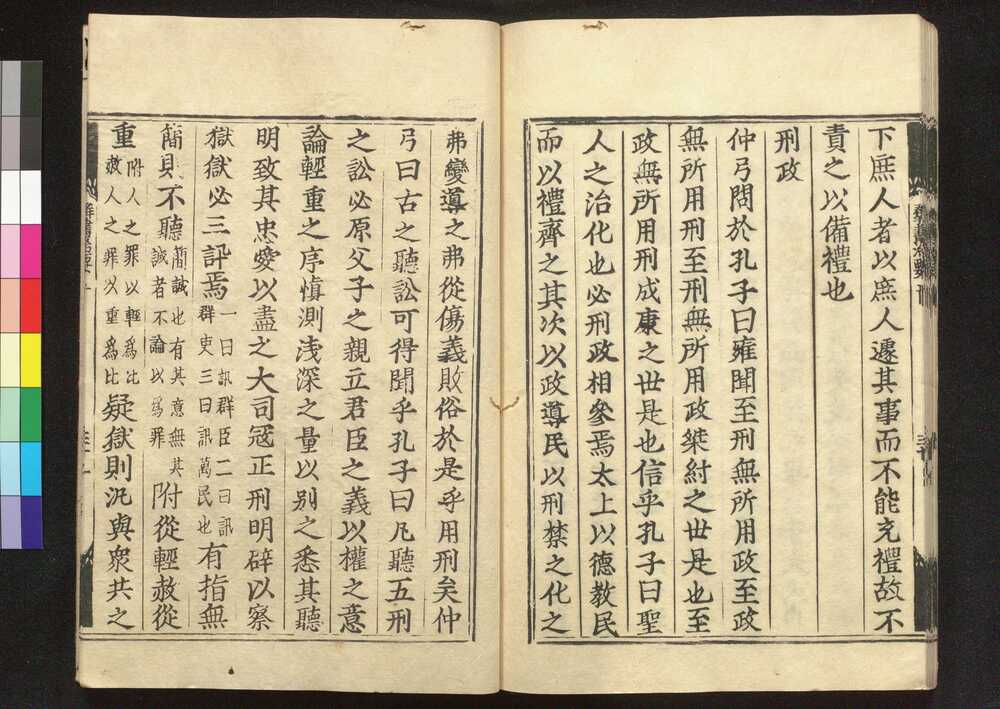 下庶人者以庶人遽其事而不能充禮故不
責之以備禮也
刑政
仲弓問於孔子曰雍聞至刑無所用政至政
無所用刑至刑無所用政桀紂之世是也至
政無所用刑成康之世是也信乎孔子曰聖
人之治化也必刑政相參焉太上以德教民
而以禮齊之其次以政導民以刑禁之化之
弗變導之弗從傷義敗俗於是乎用刑矣仲
弓曰古之聽訟可得聞乎孔子曰凡聽五刑
之訟必原父子之親立君臣之義以權之意
論輕重之序慎測淺深之量以別之悉其聽
明致其忠愛以盡之大司寇正刑明辟以察
獄獄必三訊焉一曰訊群臣二曰訊群吏三曰訊萬民也有指無
簡則不聽簡誠也有其意無其誠者不論以爲罪附從輕赦從
重附人之罪以輕爲比赦人之罪以重爲比疑獄則汎與衆共之